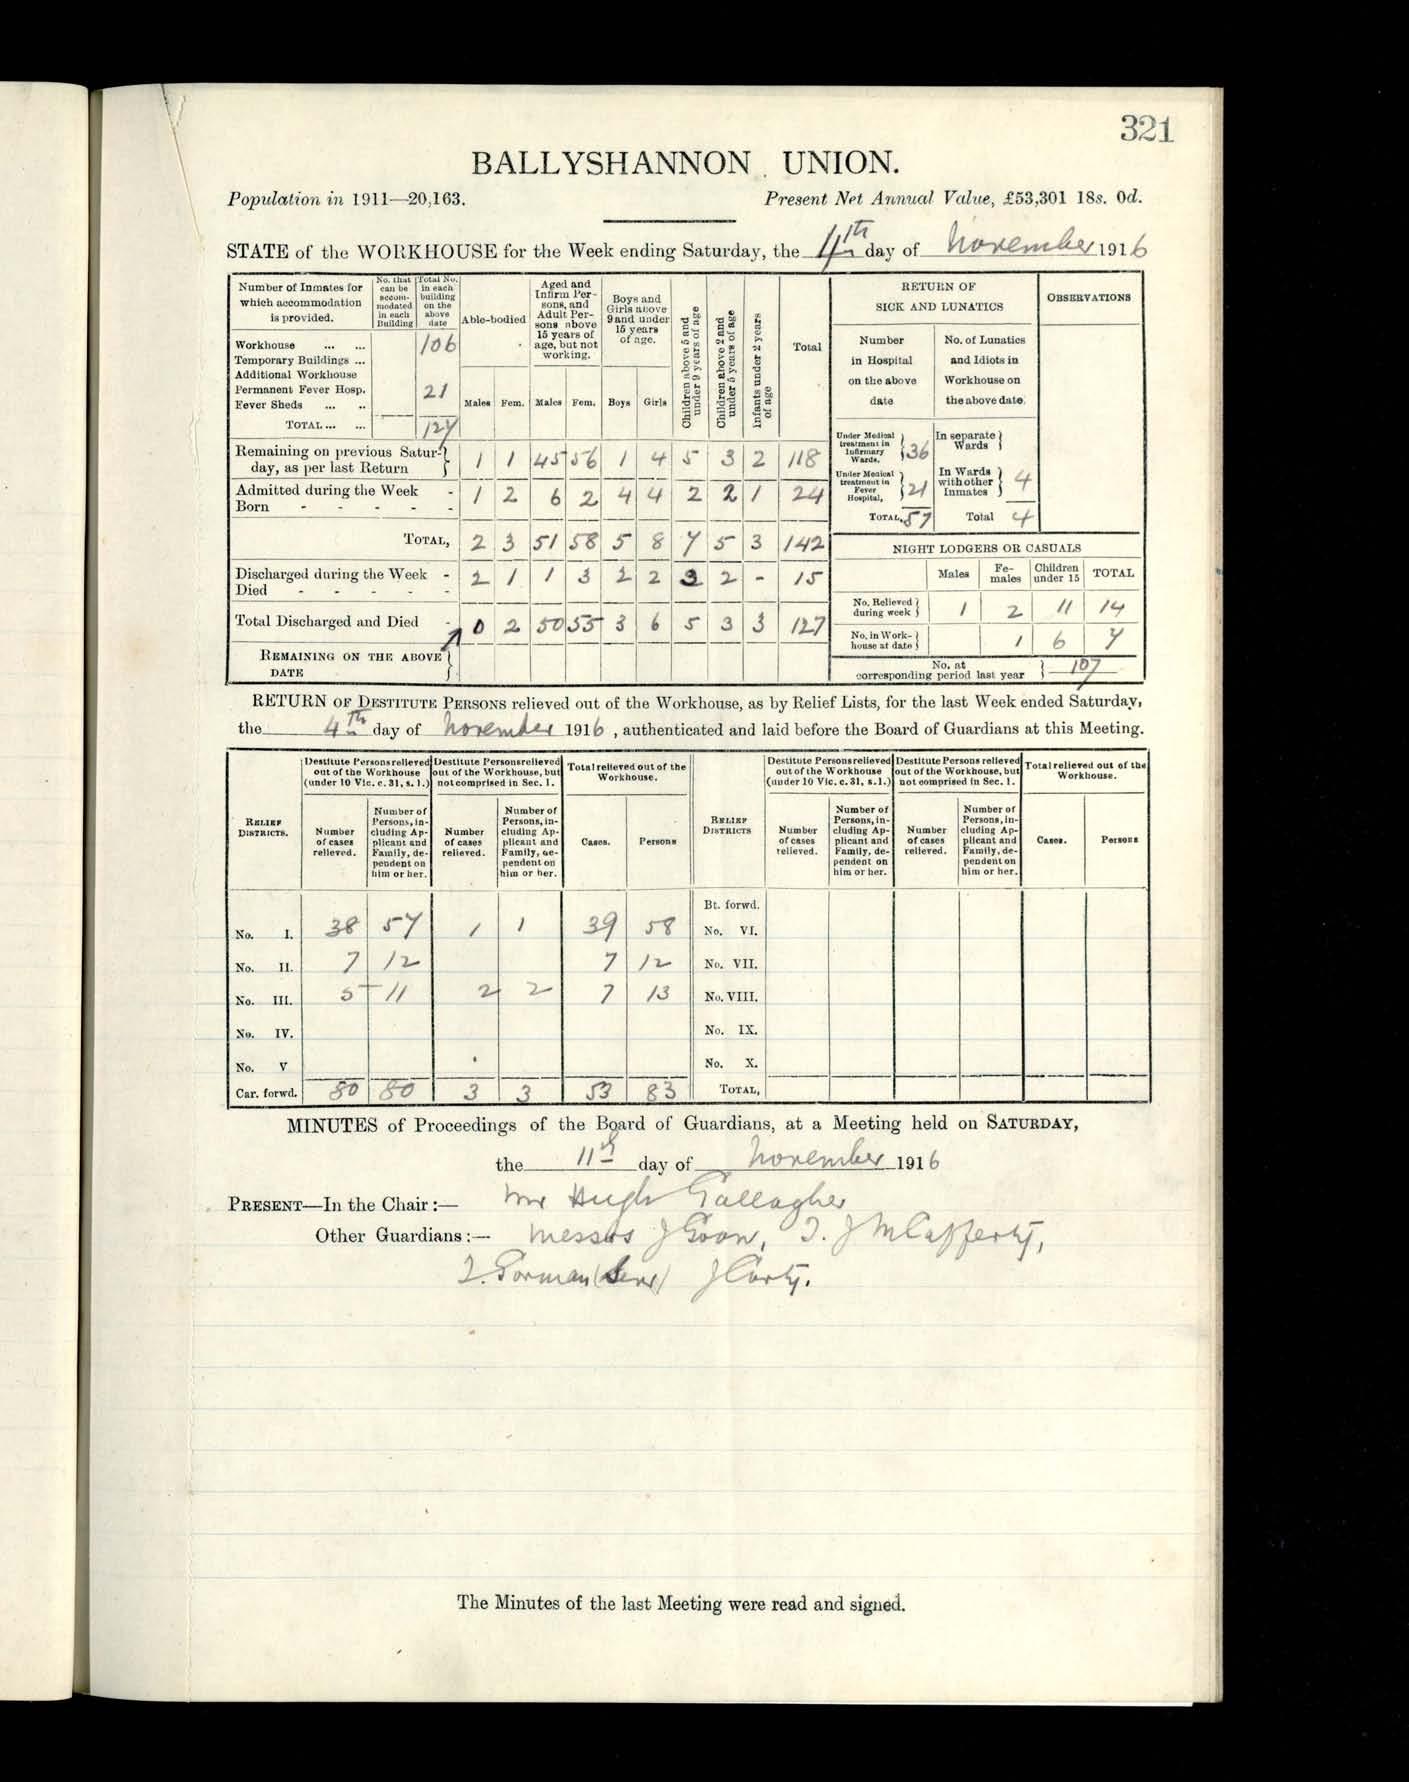 321
BALLYSHANNON UNION.
Population in 1911—20,163. Present Net Annual Value, £53,301 18s. 0d.
STATE of the WORKHOUSE for the Week ending Saturday, the 4th day of November 1916
Number of Inmates for which accommodation is provided.
No. that can be accommodated in each Building
Total No. in each building on the above date
Able-bodied
Aged and Infirm Persons, and Adult Persons above 15 years of age, but not working.
Boys and Girls above 9 and under 15 years of age.
Children above 5 and under 9 years of age
Children above 2 and under 5 years of age
Infants under 2 years of age
Total
Males Fem. Males Fem. Boys Girls
Workhouse ... ... 106
Temporary Buildings ...
Additional Workhouse
Permanent Fever Hosp. 21
Fever Sheds ... ..
TOTAL ... ... 127
Remaining on previous Saturday, as per last Return 1 1 45 56 1 4 5 3 2 118
Admitted during the Week - 1 2 6 2 4 4 2 2 1 24
Born - - - - -
TOTAL, 2 3 51 58 5 8 7 5 3 142
Discharged during the Week - 2 1 1 3 2 2 2 2 - 15
Died - - - - -
Total Discharged and Died - 0 2 50 55 3 6 5 3 3 127
REMAINING ON THE ABOVE DATE
RETURN OF SICK AND LUNATICS
OBSERVATIONS
Number in Hospital on the above date
No. of Lunatics and Idiots in Workhouse on the above date.
Under Medical treatment in Infirmary Wards. 36
In separate Wards
Under Medical treatment in Fever Hospital, 21
In Wards with other Inmates 4
TOTAL, 57 Total 4
NIGHT LODGERS OR CASUALS
Males Females Children under 15 TOTAL
No. Relieved during week 1 2 11 14
No. in Workhouse at date 1 6 7
No. at corresponding period last year 107
RETURN OF DESTITUTE PERSONS relieved out of the Workhouse, as by Relief Lists, for the last Week ended Saturday,
the 4th day of November 1916, authenticated and laid before the Board of Guardians at this Meeting.
RELIEF DISTRICTS.
Destitute Persons relieved out of the Workhouse (under 10 Vic. c. 31, s. 1.)
Destitute Persons relieved out of the Workhouse, but not comprised in Sec. 1.
Total relieved out of the Workhouse.
RELIEF DISTRICTS
Destitute Persons relieved out of the Workhouse (under 10 Vic. c. 31, s.1.)
Destitute Persons relieved out of the Workhouse, but not comprised in Sec. 1.
Total relieved out of the Workhouse.
Number of cases relieved.
Number of Persons, including Applicant and Family, dependent on him or her.
Number of cases relieved.
Number of Persons, including Applicant and Family, dependent on him or her.
Cases. Persons
Number of cases relieved.
Number of Persons, including Applicant and Family, dependent on him or her.
Number of cases relieved.
Number of Persons, including Applicant and Family, dependent on him or her.
Cases. Persons
Bt. forwd.
No. I. 38 57 1 1 39 58 No. VI.
No. II. 7 12 7 12 No. VII.
No. III. 5 11 2 2 7 13 No. VIII.
No. IV. No. IX.
No. V No. X.
Car. forwd. 80 80 3 3 53 83 TOTAL,
MINUTES of Proceedings of the Board of Guardians, at a Meeting held on SATURDAY,
the 11th day of November 1916
PRESENT—In the Chair:— Mr Hugh Gallagher
Other Guardians:— Messrs J Goan, T. J McCafferty,
T. Gorman (Senr) J Carty.
The Minutes of the last Meeting were read and signed.